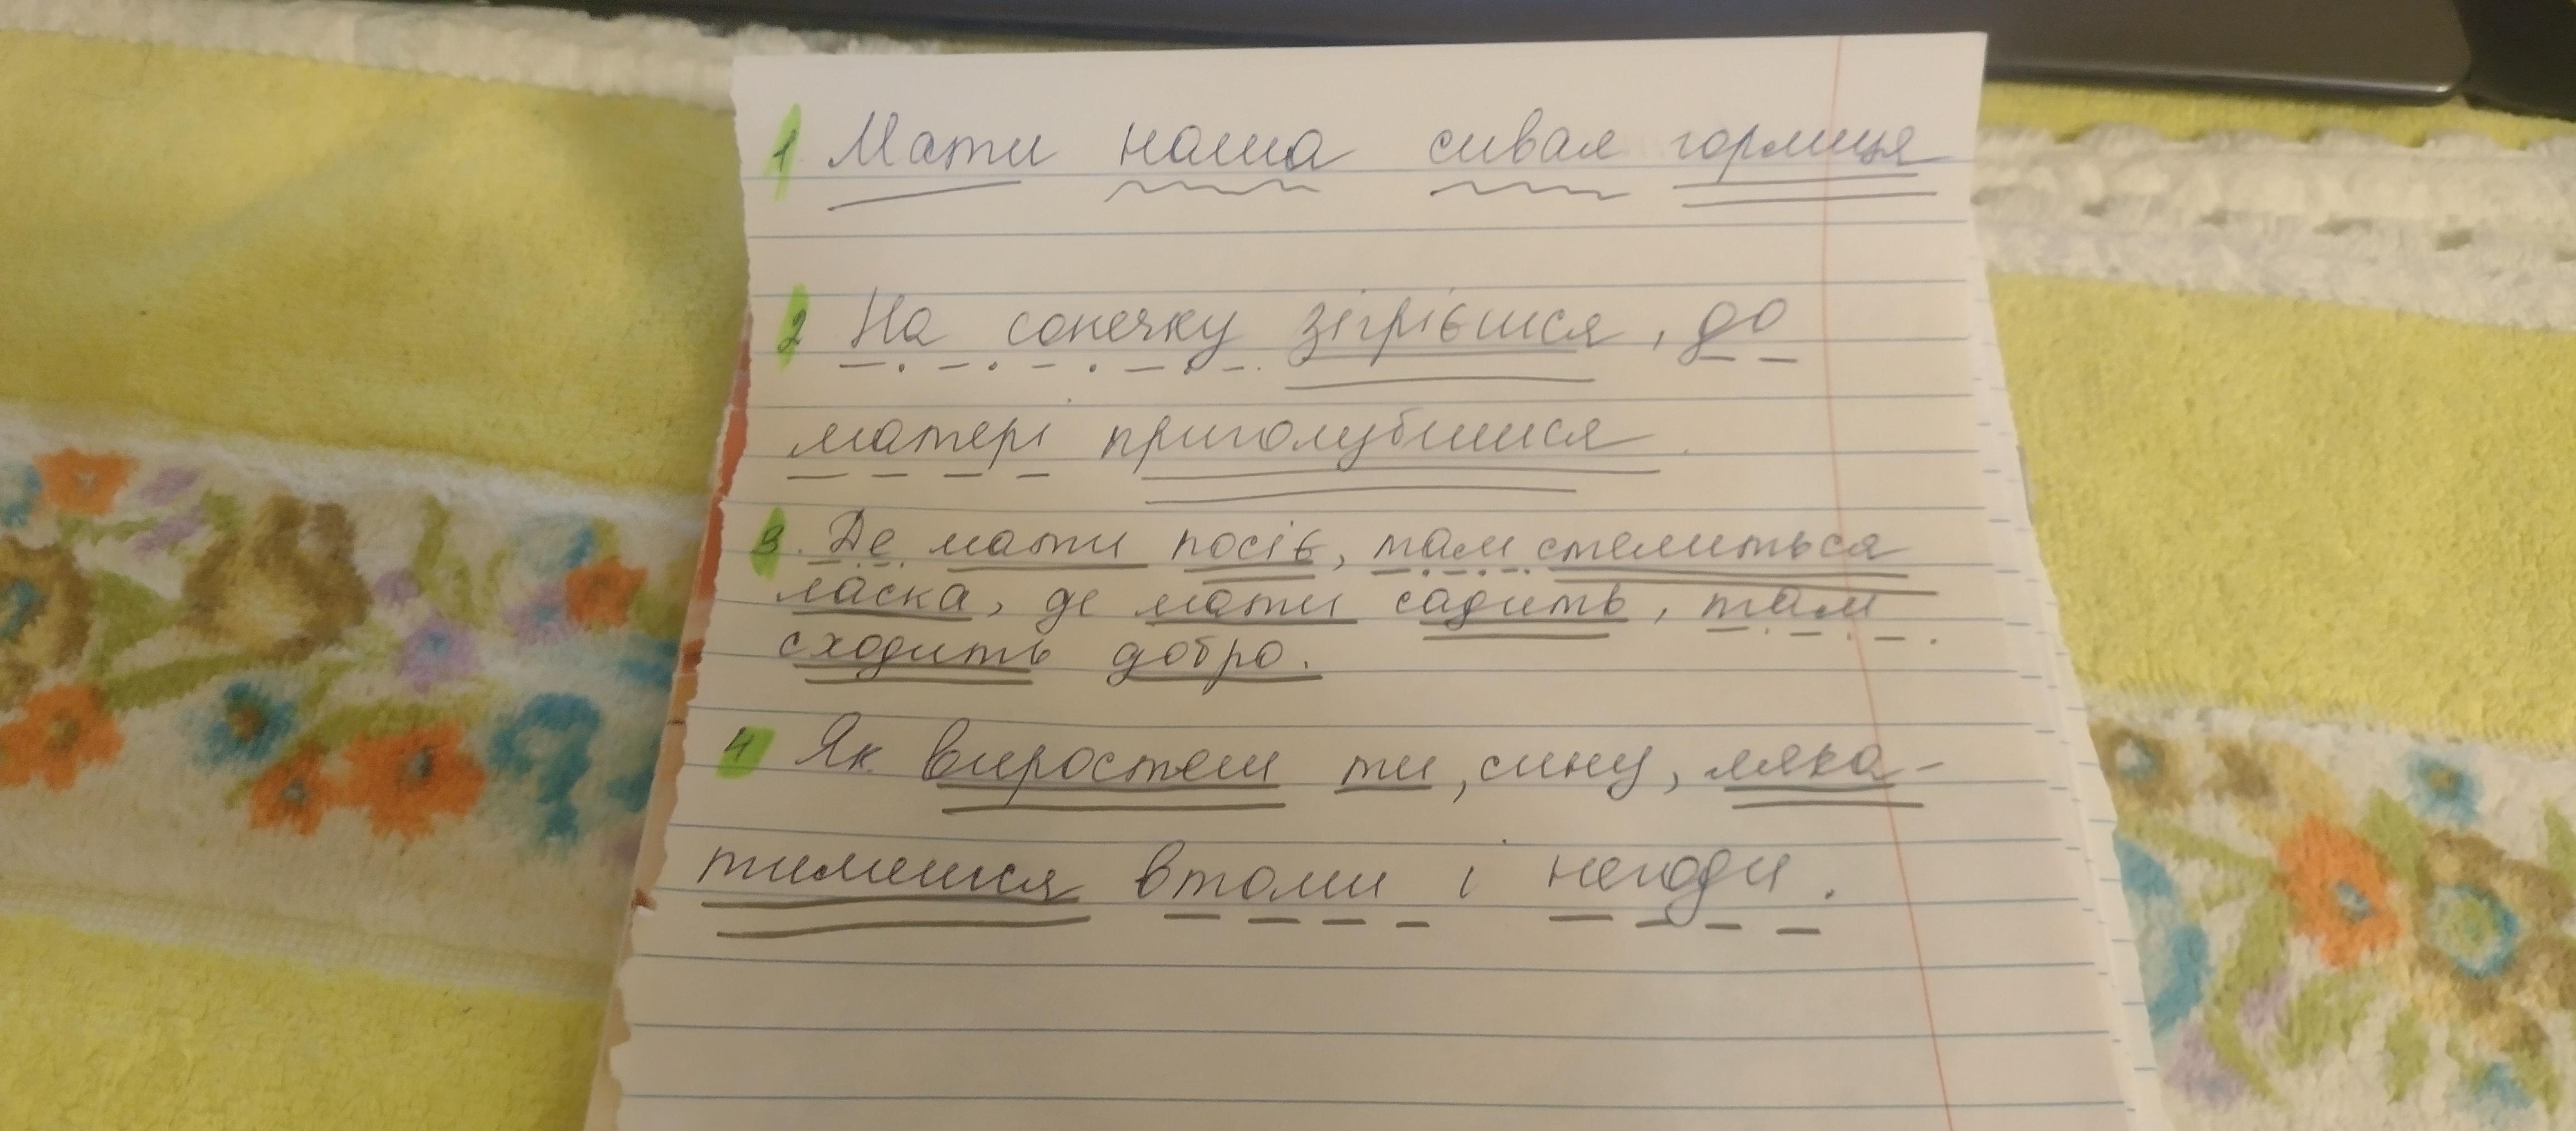 1 Мати наша сивая горлиця
2 На сонечку зігрієшся, до
матері приголубишся.
3. Де мати посіє, там стелиться
ласка, де мати садить, там
сходить добро.
4 Як виростеш ти, сину, ляка-
тимешся втоми і негоди.